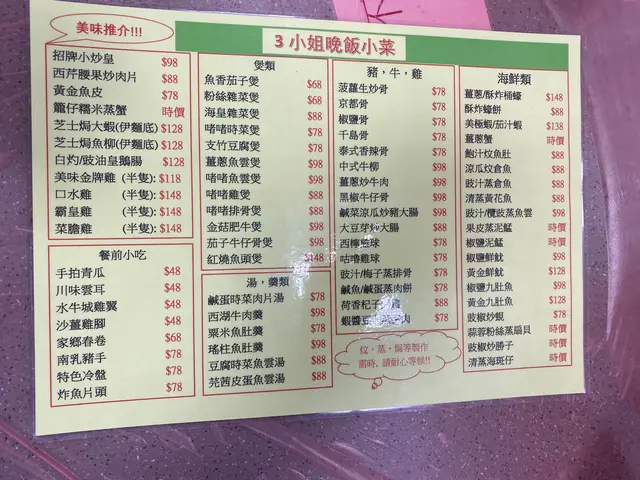 美味推介!!!
3 小姐晚飯小菜
招牌小炒皇 $98
西芹腰果炒肉片 $88
黃金魚皮 $78
籠仔糯米蒸蟹 時價
芝士焗大蝦(伊麵底) $128
芝士焗魚柳(伊麵底) $128
白灼/豉油皇鵝腸 $128
美味金牌雞 (半隻): $118
口水雞 (半隻): $148
霸皇雞 (半隻): $148
菜膽雞 (半隻): $148
餐前小吃
手拍青瓜 $48
川味雲耳 $48
水牛城雞翼 $48
沙薑雞腳 $48
家鄉春卷 $68
南乳豬手 $78
特色冷盤 $78
炸魚片頭 $78
煲類
魚香茄子煲 $68
粉絲雜菜煲 $68
海皇雜菜煲 $88
啫啫時菜煲 $78
支竹豆腐煲 $78
薑蔥魚雲煲 $98
啫啫魚雲煲 $98
啫啫雞煲 $88
啫啫排骨煲 $88
金菇肥牛煲 $98
茄子牛仔骨煲 $98
紅燒魚頭煲 $148
湯，羹類
鹹蛋時菜肉片湯 $78
西湖牛肉羹 $98
粟米魚肚羹 $78
瑤柱魚肚羹 $98
豆腐時菜魚雲湯 $88
芫茜皮蛋魚雲湯 $88
豬，牛，雞
菠蘿生炒骨 $78
京都骨 $78
椒鹽骨 $78
千島骨 $78
泰式香辣骨 $78
中式牛柳 $98
薑蔥炒牛肉 $98
黑椒牛仔骨 $98
鹹菜涼瓜炒豬大腸 $98
大豆芽炒大腸 $88
西檸雞球 $78
咕嚕雞球 $78
豉汁/梅子蒸排骨 $78
鹹魚/鹹蛋蒸肉餅 $78
荷香杞子 $88
蝦醬豆 肉 $78
炆，蒸，焗等製作
需時, 請耐心等候!!
海鮮類
薑蔥/酥炸桶蠔 $148
酥炸蠔餅 $88
美極蝦/茄汁蝦 $138
薑蔥蟹 時價
鮑汁炆魚肚 $88
涼瓜炆倉魚 $88
豉汁蒸倉魚 $88
清蒸黃花魚 $88
豉汁/欖豉蒸魚雲 $98
果皮蒸泥鯭 時價
椒鹽泥鯭 時價
椒鹽鮮魷 $98
黃金鮮魷 $128
椒鹽九肚魚 $98
黃金九肚魚 $128
豉椒炒蜆 $78
蒜蓉粉絲蒸扇貝 時價
豉椒炒勝子 時價
清蒸海斑仔 時價